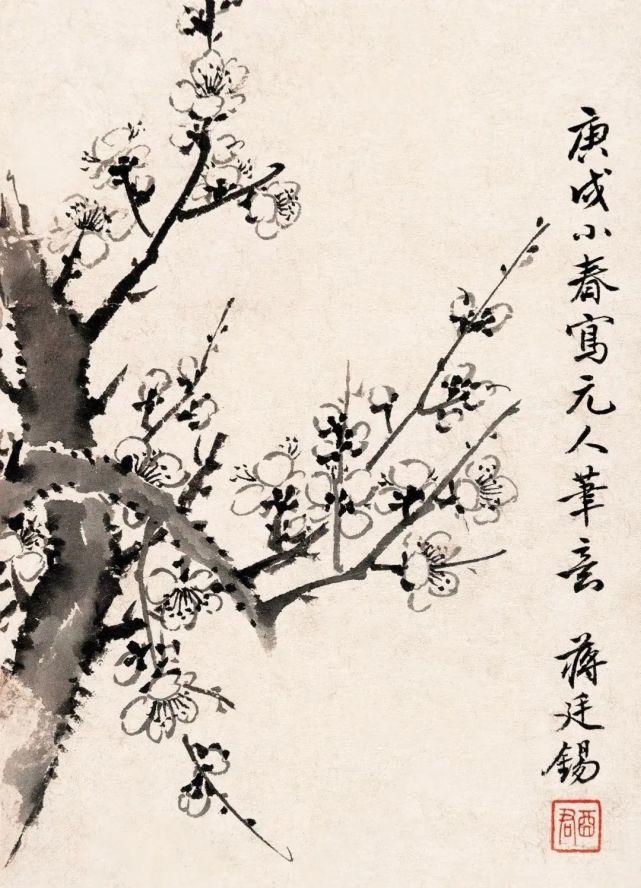 庚戌小春寫元人筆意 蔣廷錫
酉君